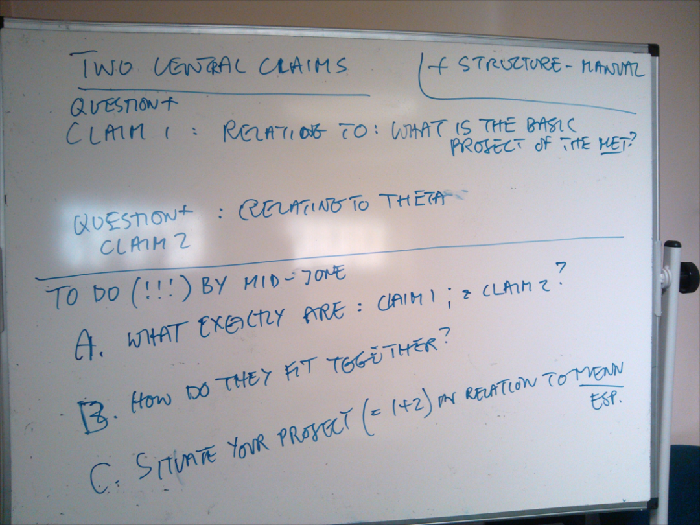 TWO CENTRAL CLAIMS
+ STRUCTURE - MANUAL
QUESTION +
CLAIM 1 : RELATING TO : WHAT IS THE BASIC
PROJECT OF THE MET?
QUESTION + : RELATING TO THETA
CLAIM 2
TO DO (!!!) BY MID-JUNE
A. WHAT EXACTLY ARE : CLAIM 1 ; = CLAIM 2 ?
B. HOW DO THEY FIT TOGETHER?
C. SITUATE YOUR PROJECT (= 1+2) IN RELATION TO MENN
ESP.